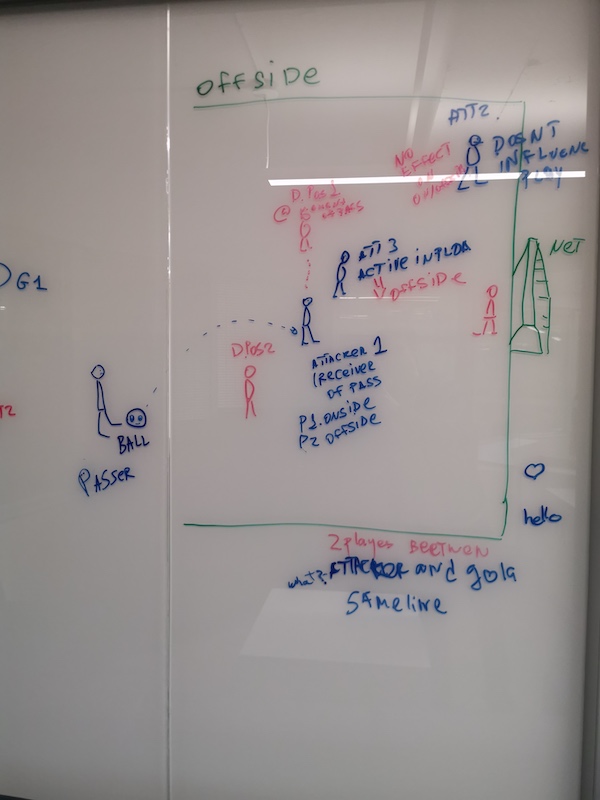 OFFSIDE
ATT2.
DOSNT
INFLUENC
PLAY
NO
EFFECT
ON
D.POS1
@
ATT 3
ACTIVE IN PLDA
OFFSIDE
NET
G1
DPOS2
ATTACKER 1
(RECEIVER
OF PASS
P1.ONSIDE
P2 OFFSIDE
BALL
PASSER
T2
hello
2 playes BEETWEN
what?: ATTACKER and gola
SAMELINE